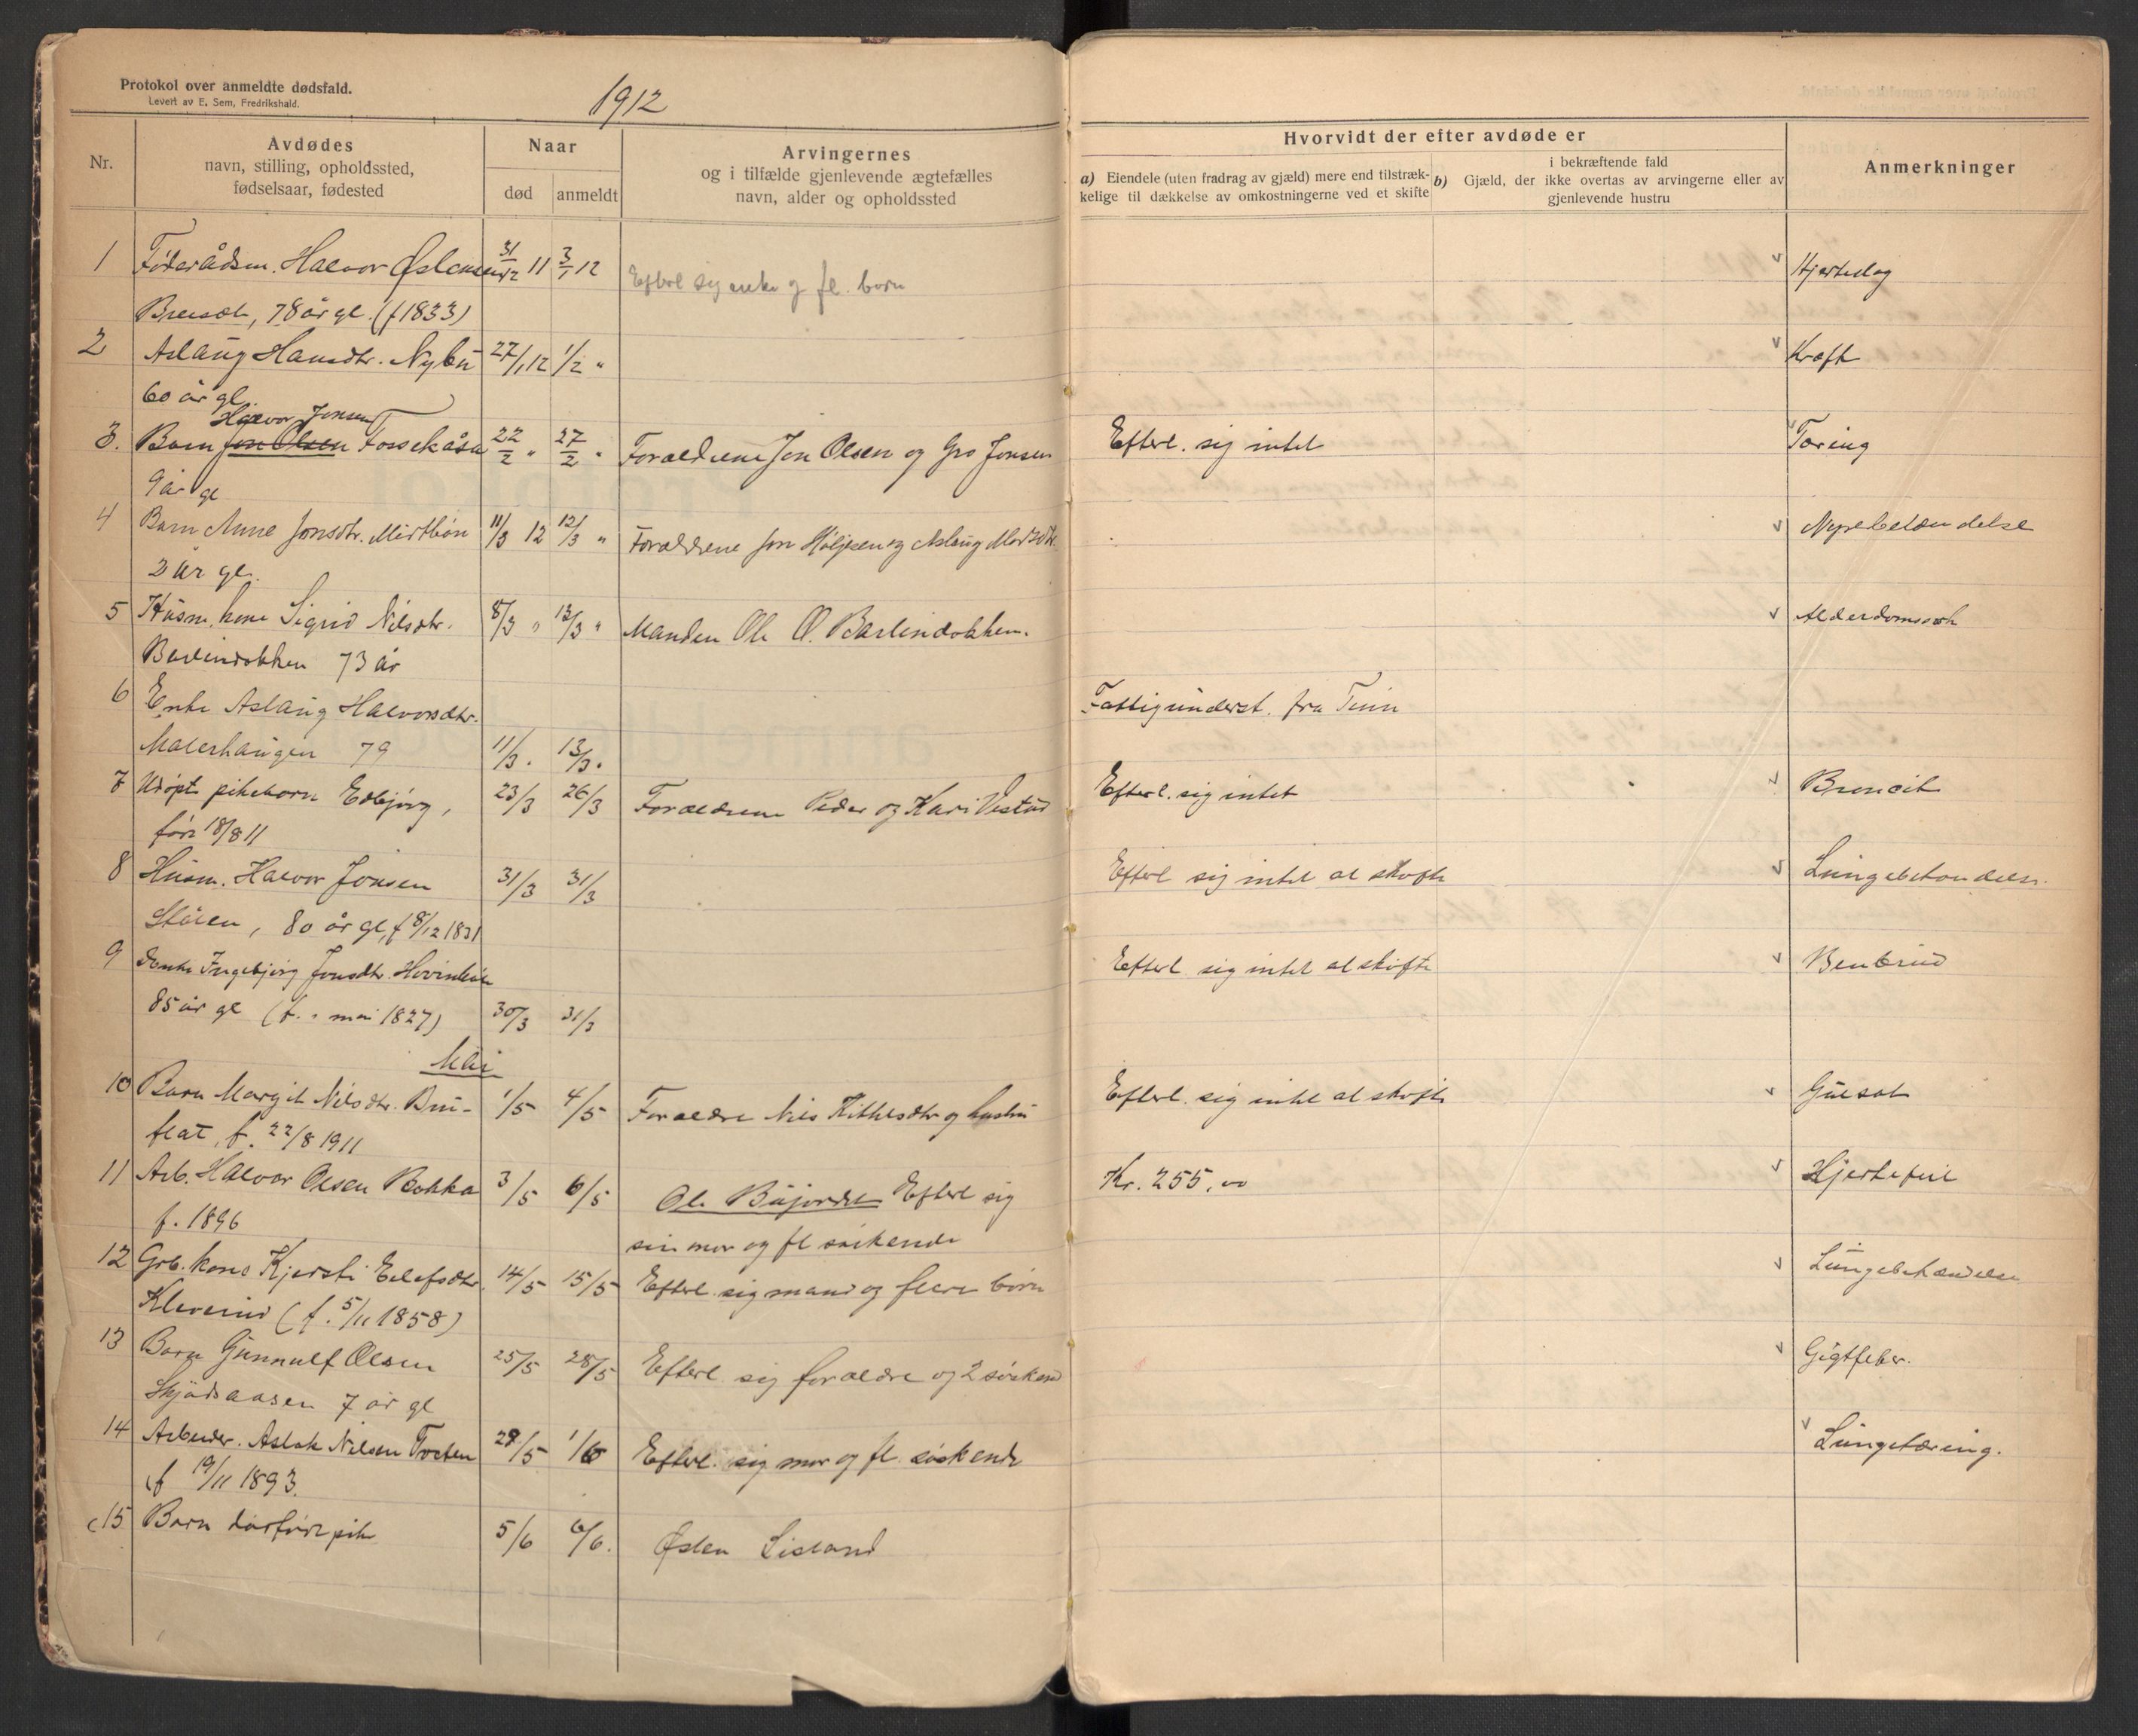 Protokol over anmeldte dødsfald.
Levert av E. Sem, Fredrikshald.
1912
Nr.
Avdødes
navn, stilling, opholdssted,
fødselsaar, fødested
Naar
død anmeldt
Arvingernes
og i tilfælde gjenlevende ægtefælles
navn, alder og opholdssted
Hvorvidt der efter avdøde er
a) Eiendele (uten fradrag av gjæld) mere end tilstræk-
kelige til dækkelse av omkostningerne ved et skifte
b) i bekræftende fald
Gjæld, der ikke overtas av arvingerne eller av
gjenlevende hustru
Anmerkninger
1 Føderådsm. Halvor Østensen 31/12 11 3/1 12 Efterl sig enke og fl. born v Hjerteslag
78 år gl. (f 1833)
2 Aslaug Hansdtr. Nybu 27/1 12 1/2 " v Kræft
60 år gl.
Halvor Jonsen
3. Barn Jon Olsen Fossekåsa 22/2 " 27/2 " Forældrene Jon Olsen og Gro Jonsen Efterl. sig intet v Tæring
9 år gl
4 Barn Anne Jonsdtr. 11/3 12 12/3 " Forældrene Jon Høljesen og Aslaug v Nyrebetændelse
2 år gl.
5 Husm. kone Sigrid Nilsdtr. 8/3 " 13/3 " Manden Ole O. Barlindokken. v
Barlindokken 73 år
6 Enke Aslaug Halvorsdtr. Fattigunderst. fra Tinn
Malerhaugen 79 11/3 . 13/3 .
7 Udøpt pikebarn Edbjørg, 23/3 26/3 Forældrene Peder og Kari Efterl. sig intet v
født 18/8 11
8 Husm. Halvor Jonsen 31/3 31/3 Efterl sig intet at skifte v Lungebetændelse.
80 år gl, f 8/12 1831
9 Enke Ingebjørg Jonsdtr. Efterl sig intet at skifte v Benbrud
85 år gl (f. " mai 1827) 30/3 31/3
Mai
10 Barn Margit Nilsdtr. Bru- 1/5 4/5 Forældre Nils og hustru Efterl. sig intet at skifte v Gulsot
flat, f. 22/8 1911
11 Arb. Halvor Olsen Bakka 3/5 6/5 Ole Bujordet Efterl sig Kr. 255,00 v Hjertefeil
f. 1896 sin mor og fl søskende
12 Grb. kone Kjersti Eilefsdtr. 14/5 15/5 Efterl. sig mand og flere børn v Lungebetændelse
Kleverud (f. 5/11 1858)
13 Barn Gunnulf Olsen 25/5 28/5 Efterl. sig forældre og 2 søskend v Gigtfeber.
7 år gl
14 Arbeider. Aslak Nilsen 28/5 1/6 Efterl. sig mor og fl. søskende v Lungetæring.
f 19/11 1893.
15 Barn dødfødt pike 5/6 6/6. Østen Sisland